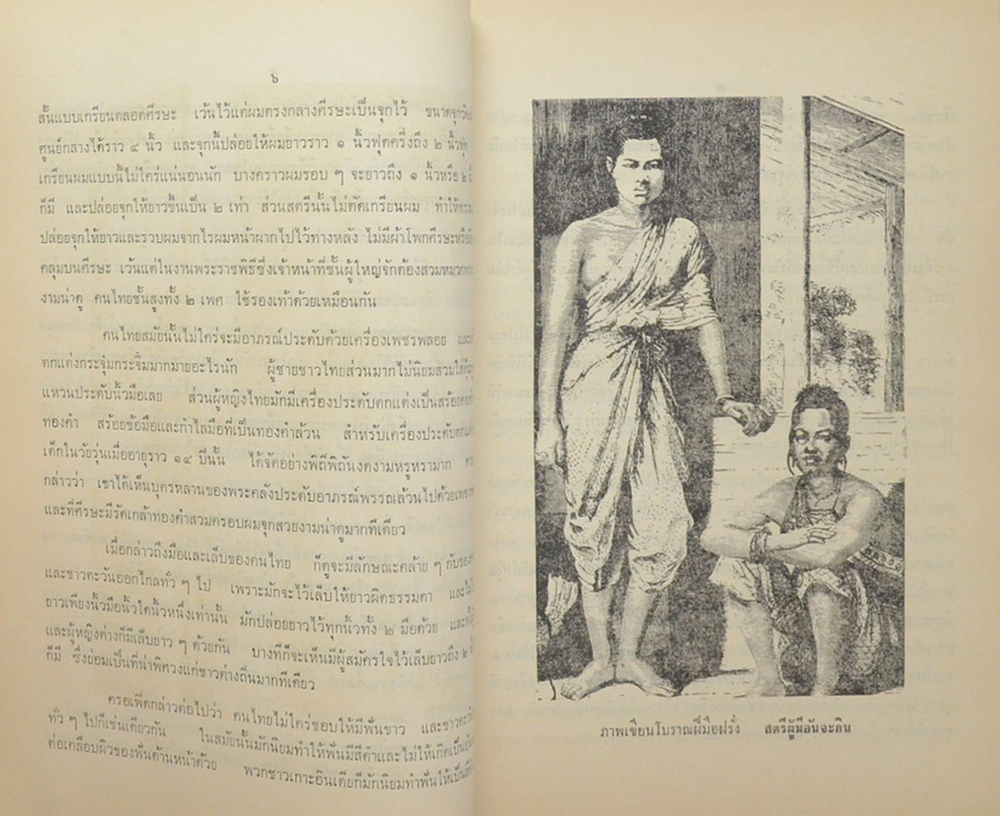 ๖
สั้นแบบเกรียนตลอดศีรษะ เว้นไว้แต่ผมตรงกลางศีรษะเป็นจุกไว้ ขนาดจุกวัด
ศูนย์กลางได้ราว ๔ นิ้ว และจุกนี้ปล่อยให้ผมยาวราว ๑ นิ้วฟุตครึ่งถึง ๒ นิ้วฟุต
เกรียนผมแบบนี้ไม่ใคร่แน่นอนนัก บางคราวผมรอบ ๆ จะยาวถึง ๑ นิ้วหรือ ๒
ก็มี และปล่อยจุกให้ยาวขึ้นเป็น ๒ เท่า ส่วนสตรีนั้นไม่ตัดเกรียนผม
ปล่อยจุกให้ยาวและรวบผมจากไรผมหน้าผากไปไว้ทางหลัง ไม่มีผ้าโพกศีรษะหรือ
คลุมบนศีรษะ เว้นแต่ในงานพระราชพิธีซึ่งเจ้าหน้าที่ชั้นผู้ใหญ่จักต้องสวมหมวก
งามน่าดู คนไทยชั้นสูงทั้ง ๒ เพศ ใช้รองเท้าด้วยเหมือนกัน
คนไทยสมัยนั้นไม่ใคร่จะมีอาภรณ์ประดับด้วยเครื่องเพชรพลอย
ตกแต่งกระจุ๋มกระจิ๋มมากมายอะไรนัก ผู้ชายชาวไทยส่วนมากไม่นิยมสวมใส่
แหวนประดับนิ้วมือเลย ส่วนผู้หญิงไทยมักมีเครื่องประดับตกแต่งเป็นสร้อย
ทองคำ สร้อยข้อมือและกำไลมือที่เป็นทองคำล้วน สำหรับเครื่องประดับ
เด็กในวัยรุ่นเมื่ออายุราว ๑๔ ปีนั้น ได้จัดอย่างพิถีพิถันงดงามหรูหรามาก
กล่าวว่า เขาได้เห็นบุตรหลานของพระคลังประดับอาภรณ์พรรณล้วนไปด้วย
และที่ศีรษะมีรัดเกล้าทองคำสวมครอบผมจุกสวยงามน่าดูมากทีเดียว
เมื่อกล่าวถึงมือและเล็บของคนไทย ก็ดูจะมีลักษณะคล้าย ๆ กับของ
และชาวตะวันออกไกลทั่ว ๆ ไป เพราะมักจะไว้เล็บให้ยาวผิดธรรมดา
ยาวเพียงนิ้วมือนิ้วใดนิ้วหนึ่งเท่านั้น มักปล่อยยาวไว้ทุกนิ้วทั้ง ๒ มือด้วย
และผู้หญิงต่างก็มีเล็บยาว ๆ ด้วยกัน บางทีก็จะเห็นมีผู้สมัครใจไว้เล็บยาวถึง ๒
ก็มี ซึ่งย่อมเป็นที่น่าพิศวงแก่ชาวต่างถิ่นมากทีเดียว
ครอเฟิดกล่าวต่อไปว่า คนไทยไม่ใคร่ชอบให้มีฟันขาว
ทั่ว ๆ ไปก็เช่นเดียวกัน ในสมัยนั้นมักนิยมทำให้ฟันมีสีดำและไม่ให้เกิดเป็น
ต่อเคลือบผิวของฟันด้านหน้าด้วย พวกชาวเกาะอินเดียก็มักนิยมทำฟันให้เป็น
ภาพเขียนโบราณฝีมือฝรั่ง สตรีผู้มีอันจะกิน